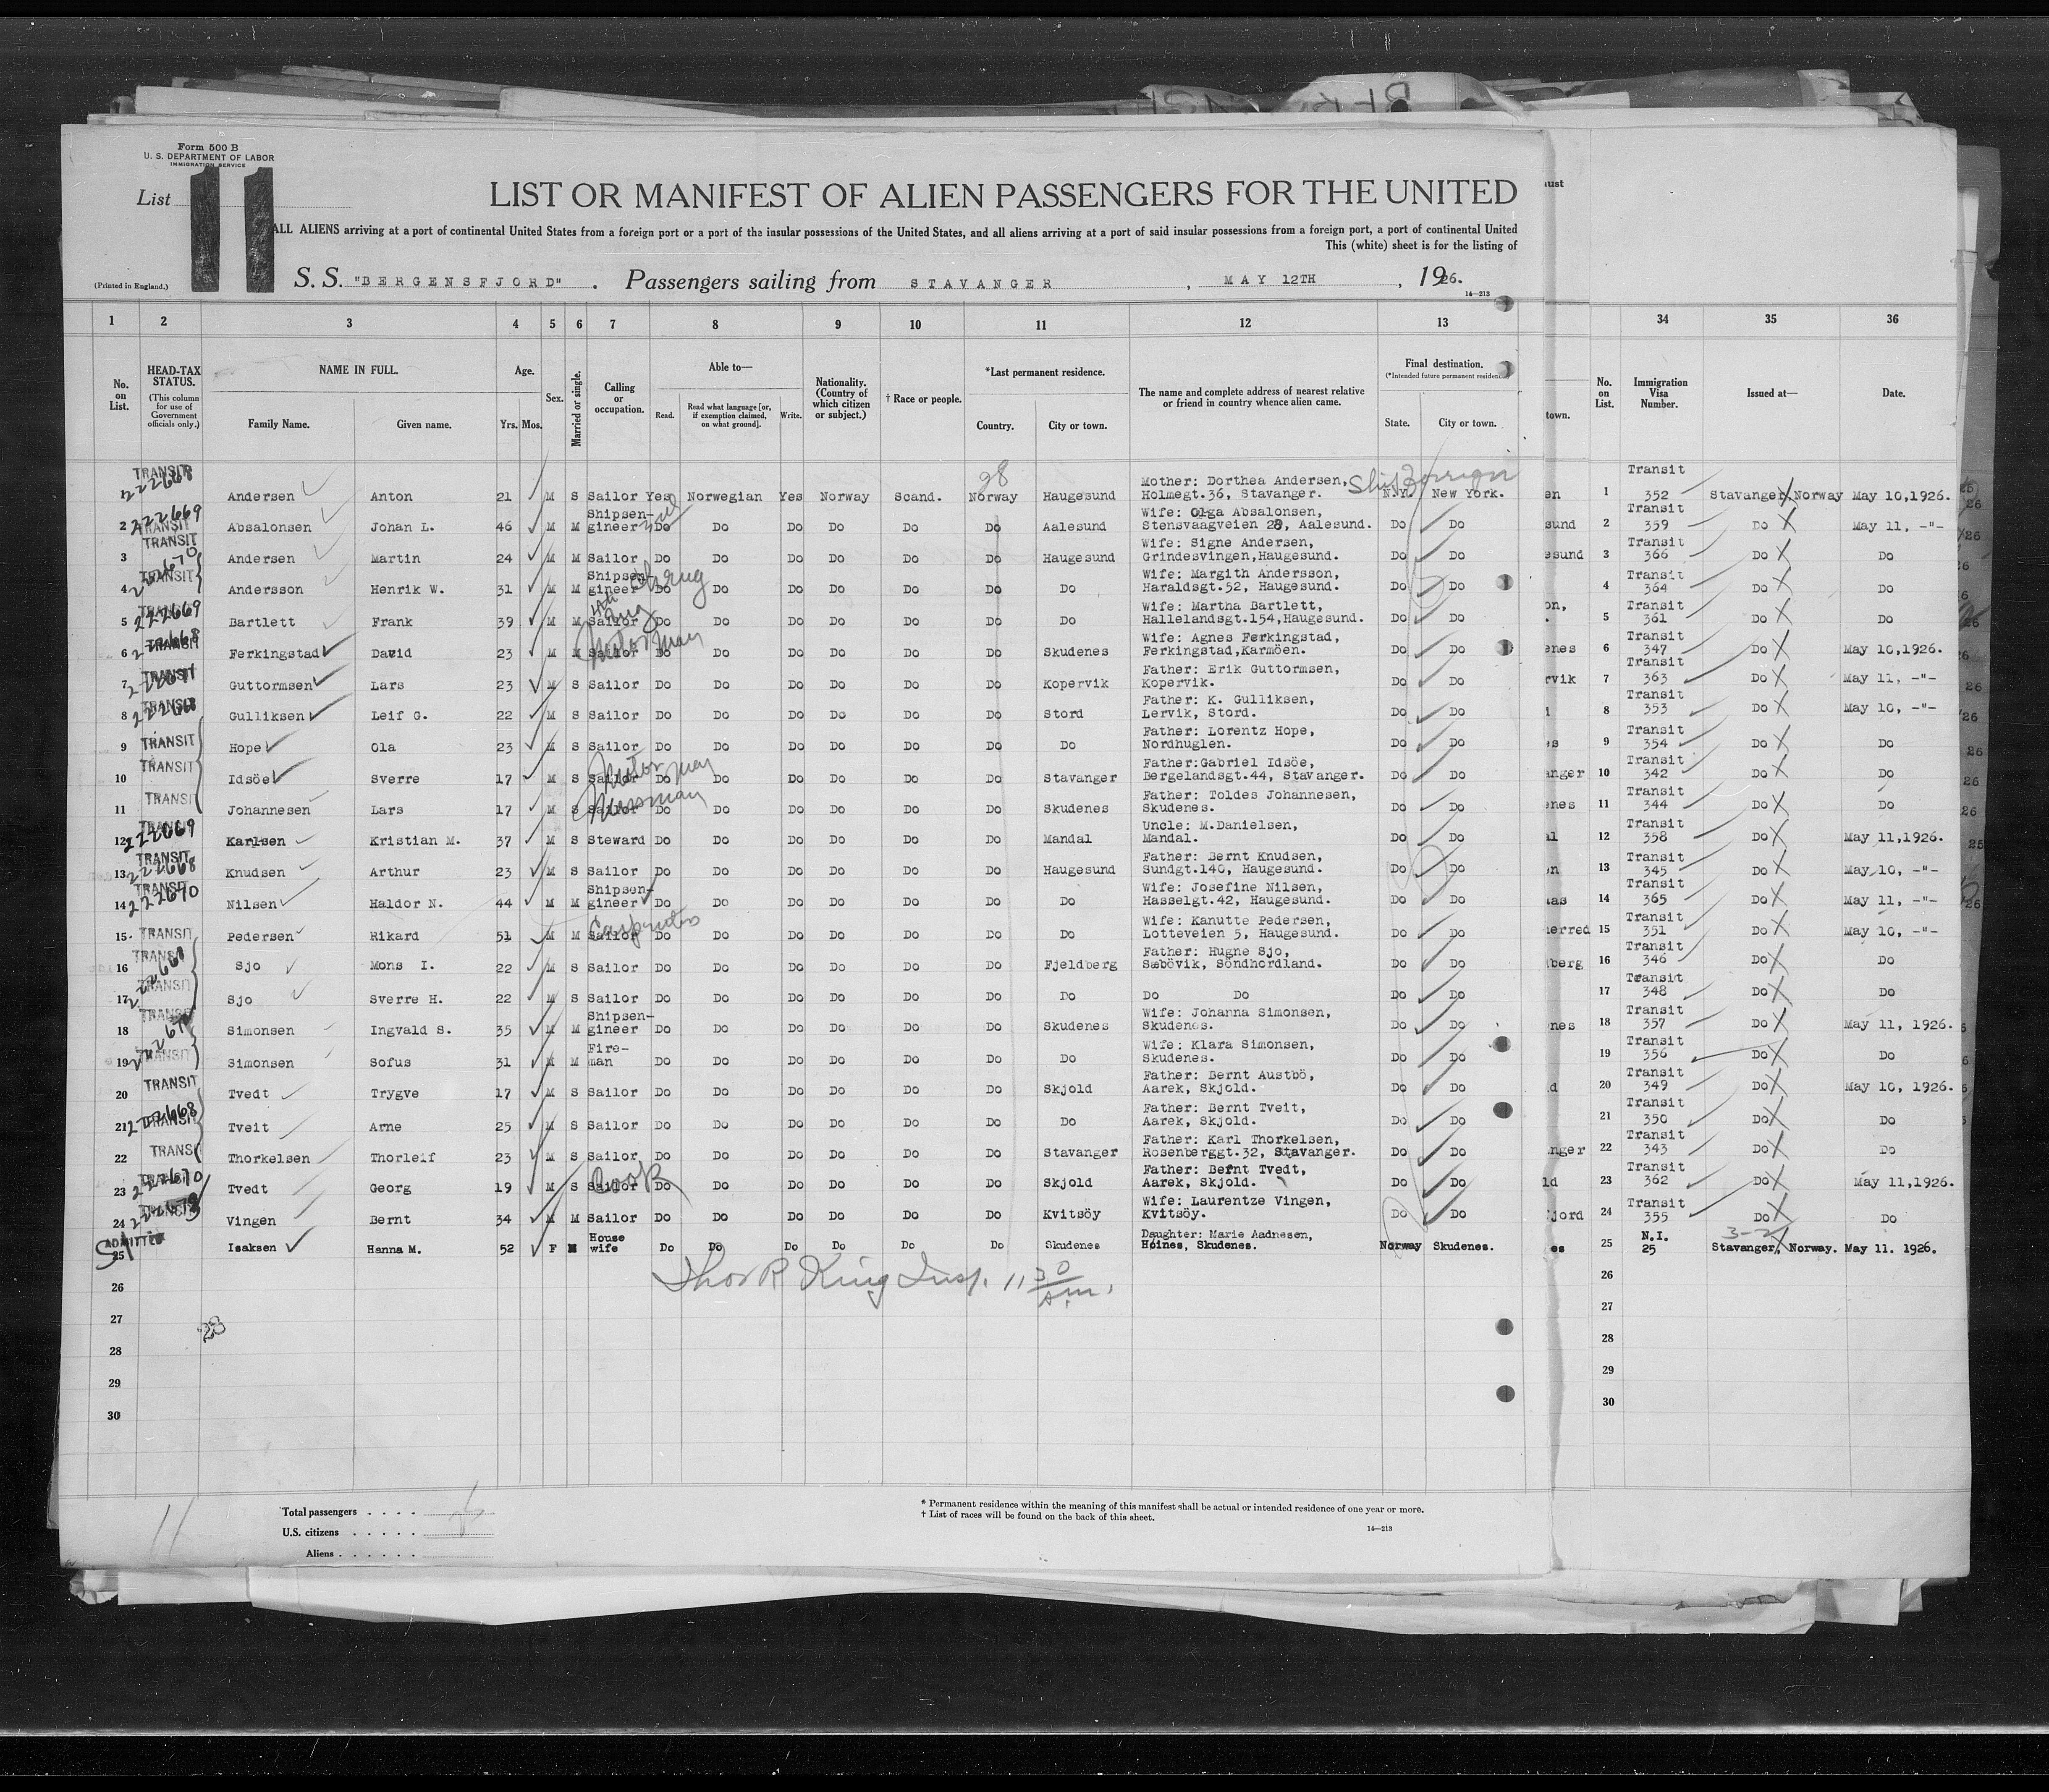 Form 500 B
U. S. DEPARTMENT OF LABOR
IMMIGRATION SERVICE
List 11
LIST OR MANIFEST OF ALIEN PASSENGERS FOR THE UNITED
ALL ALIENS arriving at a port of continental United States from a foreign port or a port of the insular possessions of the United States, and all aliens arriving at a port of said insular possessions from a foreign port, a port of continental United
This (white) sheet is for the listing of
(Printed in England.)
S. S. "BERGENSFJORD". Passengers sailing from STAVANGER, MAY 12TH, 1926.
14—213
1 2 3 4 5 6 7 8 9 10 11 12 13 34 35 36
No. on List. HEAD-TAX STATUS. (This column for use of Government officials only.) NAME IN FULL. Family Name. Given name. Age. Yrs. Mos. Sex. Married or single. Calling or occupation. Able to— Read. Read what language [or, if exemption claimed, on what ground]. Write. Nationality. (Country of which citizen or subject.) † Race or people. *Last permanent residence. Country. City or town. The name and complete address of nearest relative or friend in country whence alien came. Final destination. (*Intended future permanent residence) State. City or town. town. No. on List. Immigration Visa Number. Issued at— Date.
TRANSIT 222668 Andersen Anton 21 M S Sailor Yes Norwegian Yes Norway Scand. Norway Haugesund Mother: Dorthea Andersen, Holmegt.36, Stavanger. N.Y. New York. 1 Transit 352 Stavanger, Norway May 10,1926.
2 TRANSIT 222669 Absalonsen Johan L. 46 M M Shipsengineer Do Do Do Do Do Do Aalesund Wife: Olga Absalonsen, Stensvaagveien 28, Aalesund. Do Do 2 Transit 359 Do May 11, -"-
3 TRANSIT Andersen Martin 24 M M Sailor Do Do Do Do Do Do Haugesund Wife: Signe Andersen, Grindesvingen,Haugesund. Do Do 3 Transit 366 Do Do
4 TRANSIT 222670 Andersson Henrik W. 31 M M Shipsengineer Do Do Do Do Do Do Do Wife: Margith Andersson, Haraldsgt.52, Haugesund. Do Do 4 Transit 364 Do Do
5 TRANSIT 222669 Bartlett Frank 39 M M Sailor Do Do Do Do Do Do Do Wife: Martha Bartlett, Hallelandsgt.154,Haugesund. Do Do 5 Transit 361 Do Do
6 TRANSIT 222668 Ferkingstad David 23 M M Sailor Motorman Do Do Do Do Do Do Skudenes Wife: Agnes Ferkingstad, Ferkingstad,Karmöen. Do Do 6 Transit 347 Do May 10,1926.
7 TRANSIT 222671 Guttormsen Lars 23 M S Sailor Do Do Do Do Do Do Kopervik Father: Erik Guttormsen, Kopervik. Do Do 7 Transit 363 Do May 11, -"-
8 TRANSIT 222668 Gulliksen Leif G. 22 M S Sailor Do Do Do Do Do Do Stord Father: K. Gulliksen, Lervik, Stord. Do Do 8 Transit 353 Do May 10, -"-
9 TRANSIT Hope Ola 23 M S Sailor Do Do Do Do Do Do Do Father: Lorentz Hope, Nordhuglen. Do Do 9 Transit 354 Do Do
10 TRANSIT Idsöe Sverre 17 M S Sailor Motorman Do Do Do Do Do Do Stavanger Father:Gabriel Idsöe, Bergelandsgt.44, Stavanger. Do Do 10 Transit 342 Do Do
11 TRANSIT Johannesen Lars 17 M S Sailor Messman Do Do Do Do Do Do Skudenes Father: Toldes Johannesen, Skudenes. Do Do 11 Transit 344 Do Do
12 TRANSIT 222669 Karlsen Kristian M. 37 M S Steward Do Do Do Do Do Do Mandal Uncle: M.Danielsen, Mandal. Do Do 12 Transit 358 Do May 11,1926.
13 TRANSIT 222668 Knudsen Arthur 23 M S Sailor Do Do Do Do Do Do Haugesund Father: Bernt Knudsen, Sundgt.140, Haugesund. Do Do 13 Transit 345 Do May 10, -"-
14 TRANSIT 222670 Nilsen Haldor N. 44 M M Shipsen-gineer Do Do Do Do Do Do Do Wife: Josefine Nilsen, Hasselgt.42, Haugesund. Do Do 14 Transit 365 Do May 11, -"-
15 TRANSIT Pedersen Rikard 51 M M Sailor Carpenter Do Do Do Do Do Do Do Wife: Kanutte Pedersen, Lotteveien 5, Haugesund. Do Do 15 Transit 351 Do May 10, -"-
16 TRANSIT Sjo Mons I. 22 M S Sailor Do Do Do Do Do Do Fjeldberg Father: Hugne Sjo, Sæbövik, Söndhordland. Do Do 16 Transit 346 Do Do
17 TRANSIT Sjo Sverre H. 22 M S Sailor Do Do Do Do Do Do Do Do Do Do Do 17 Transit 348 Do Do
18 TRANSIT Simonsen Ingvald S. 35 M M Shipsen-gineer Do Do Do Do Do Do Skudenes Wife: Johanna Simonsen, Skudenes. Do Do 18 Transit 357 Do May 11, 1926.
19 TRANSIT Simonsen Sofus 31 M M Fire-man Do Do Do Do Do Do Do Wife: Klara Simonsen, Skudenes. Do Do 19 Transit 356 Do Do
20 TRANSIT Tvedt Trygve 17 M S Sailor Do Do Do Do Do Do Skjold Father: Bernt Austbö, Aarek, Skjold. Do Do 20 Transit 349 Do May 10, 1926.
21 TRANSIT 222668 Tveit Arne 25 M S Sailor Do Do Do Do Do Do Do Father: Bernt Tveit, Aarek, Skjold. Do Do 21 Transit 350 Do Do
22 TRANSIT Thorkelsen Thorleif 23 M S Sailor Do Do Do Do Do Do Stavanger Father: Karl Thorkelsen, Rosenberggt.32, Stavanger. Do Do 22 Transit 343 Do Do
23 TRANSIT 222670 Tvedt Georg 19 M S Sailor Cook Do Do Do Do Do Do Skjold Father: Bernt Tvedt, Aarek, Skjold. Do Do 23 Transit 362 Do May 11,1926.
24 TRANSIT Vingen Bernt 34 M M Sailor Do Do Do Do Do Do Kvitsöy Wife: Laurentze Vingen, Kvitsöy. Do Do 24 Transit 355 Do Do
25 ADMITTED Isaksen Hanna M. 52 F M House wife Do Do Do Do Do Do Skudenes Daughter: Marie Aadnesen, Höines, Skudenes. Norway Skudenes. 25 N.I. 25 Stavanger, Norway. May 11. 1926.
26 Thos R King Insp. 11 30 Am. 26
27 27
28
28 28
29 29
30 30
11
Total passengers
U.S. citizens
Aliens
* Permanent residence within the meaning of this manifest shall be actual or intended residence of one year or more.
† List of races will be found on the back of this sheet.
14—213